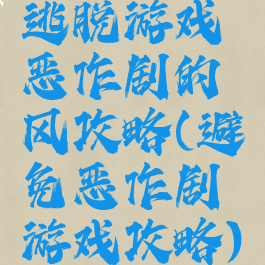 逃脱游戏
恶作剧的
风攻略(避
免恶作剧
游戏攻略)